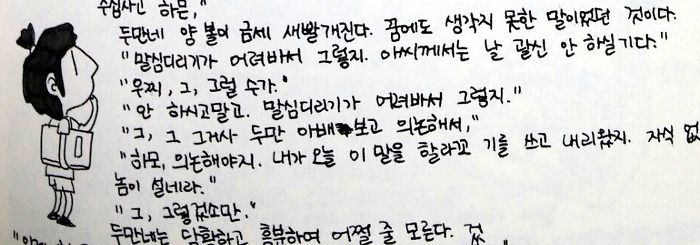 수심사고 하믄,"
두만네 양 볼이 금세 새빨개진다. 꿈에도 생각지 못한 말이었던 것이다.
"말심디리기가 어려바서 그렇지. 아씨께서는 날 괄신 안 하실기다."
"우찌, 그, 그럴 수가."
"안 하시고말고. 말심디리기가 어려바서 그렇지."
"그, 그 그거사 두만 아배보고 의논해서,"
"하모, 의논해야지. 내가 오늘 이 말을 할라꼬 기를 쓰고 내리왔지. 자식 없
놈이 설네라."
"그, 그렇겄소만."
두만네는 당황하고 흥분하여 어쩔 줄 모른다. 겄